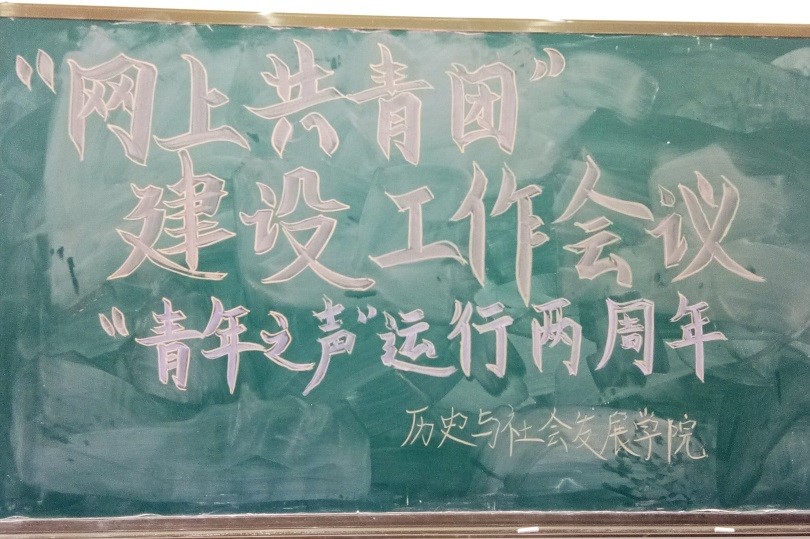 “网上共青团”
建设工作会议
“青年之声”运行两周年
历史与社会发展学院